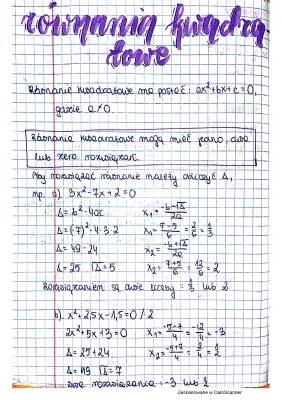 równania kwadra
towe
Równanie kwadratowe ma postać: ax²+bx+c=0,
gdzie a≠0
Równania kwadratowe mogą mieć jedno, dwa
lub zero rozwiązań.
Aby rozwiązać równanie należy obliczyć Δ,
np. a) 3x²-7x+2=0
Δ=b²-4ac x₁=(-b-√Δ)/2a
Δ=(-7)²-4·3·2 x₁=(7-5)/6=2/6=1/3
Δ=49-24 x₂=(-b+√Δ)/2a
Δ=25 √Δ=5 x₂=(7+5)/6=12/6=2
Rozwiązaniem są dwie liczby: 1/3 lub 2
b) x²+2,5x-1,5=0 /·2
2x²+5x+3=0 x₁=(-5-7)/4=-12/4=-3
Δ=25+24 x₂=(-5+7)/4=2/4=1/2
Δ=49 √Δ=7
Dwa rozwiązania -3 lub 1/2
Zeskanowane w CamScanner